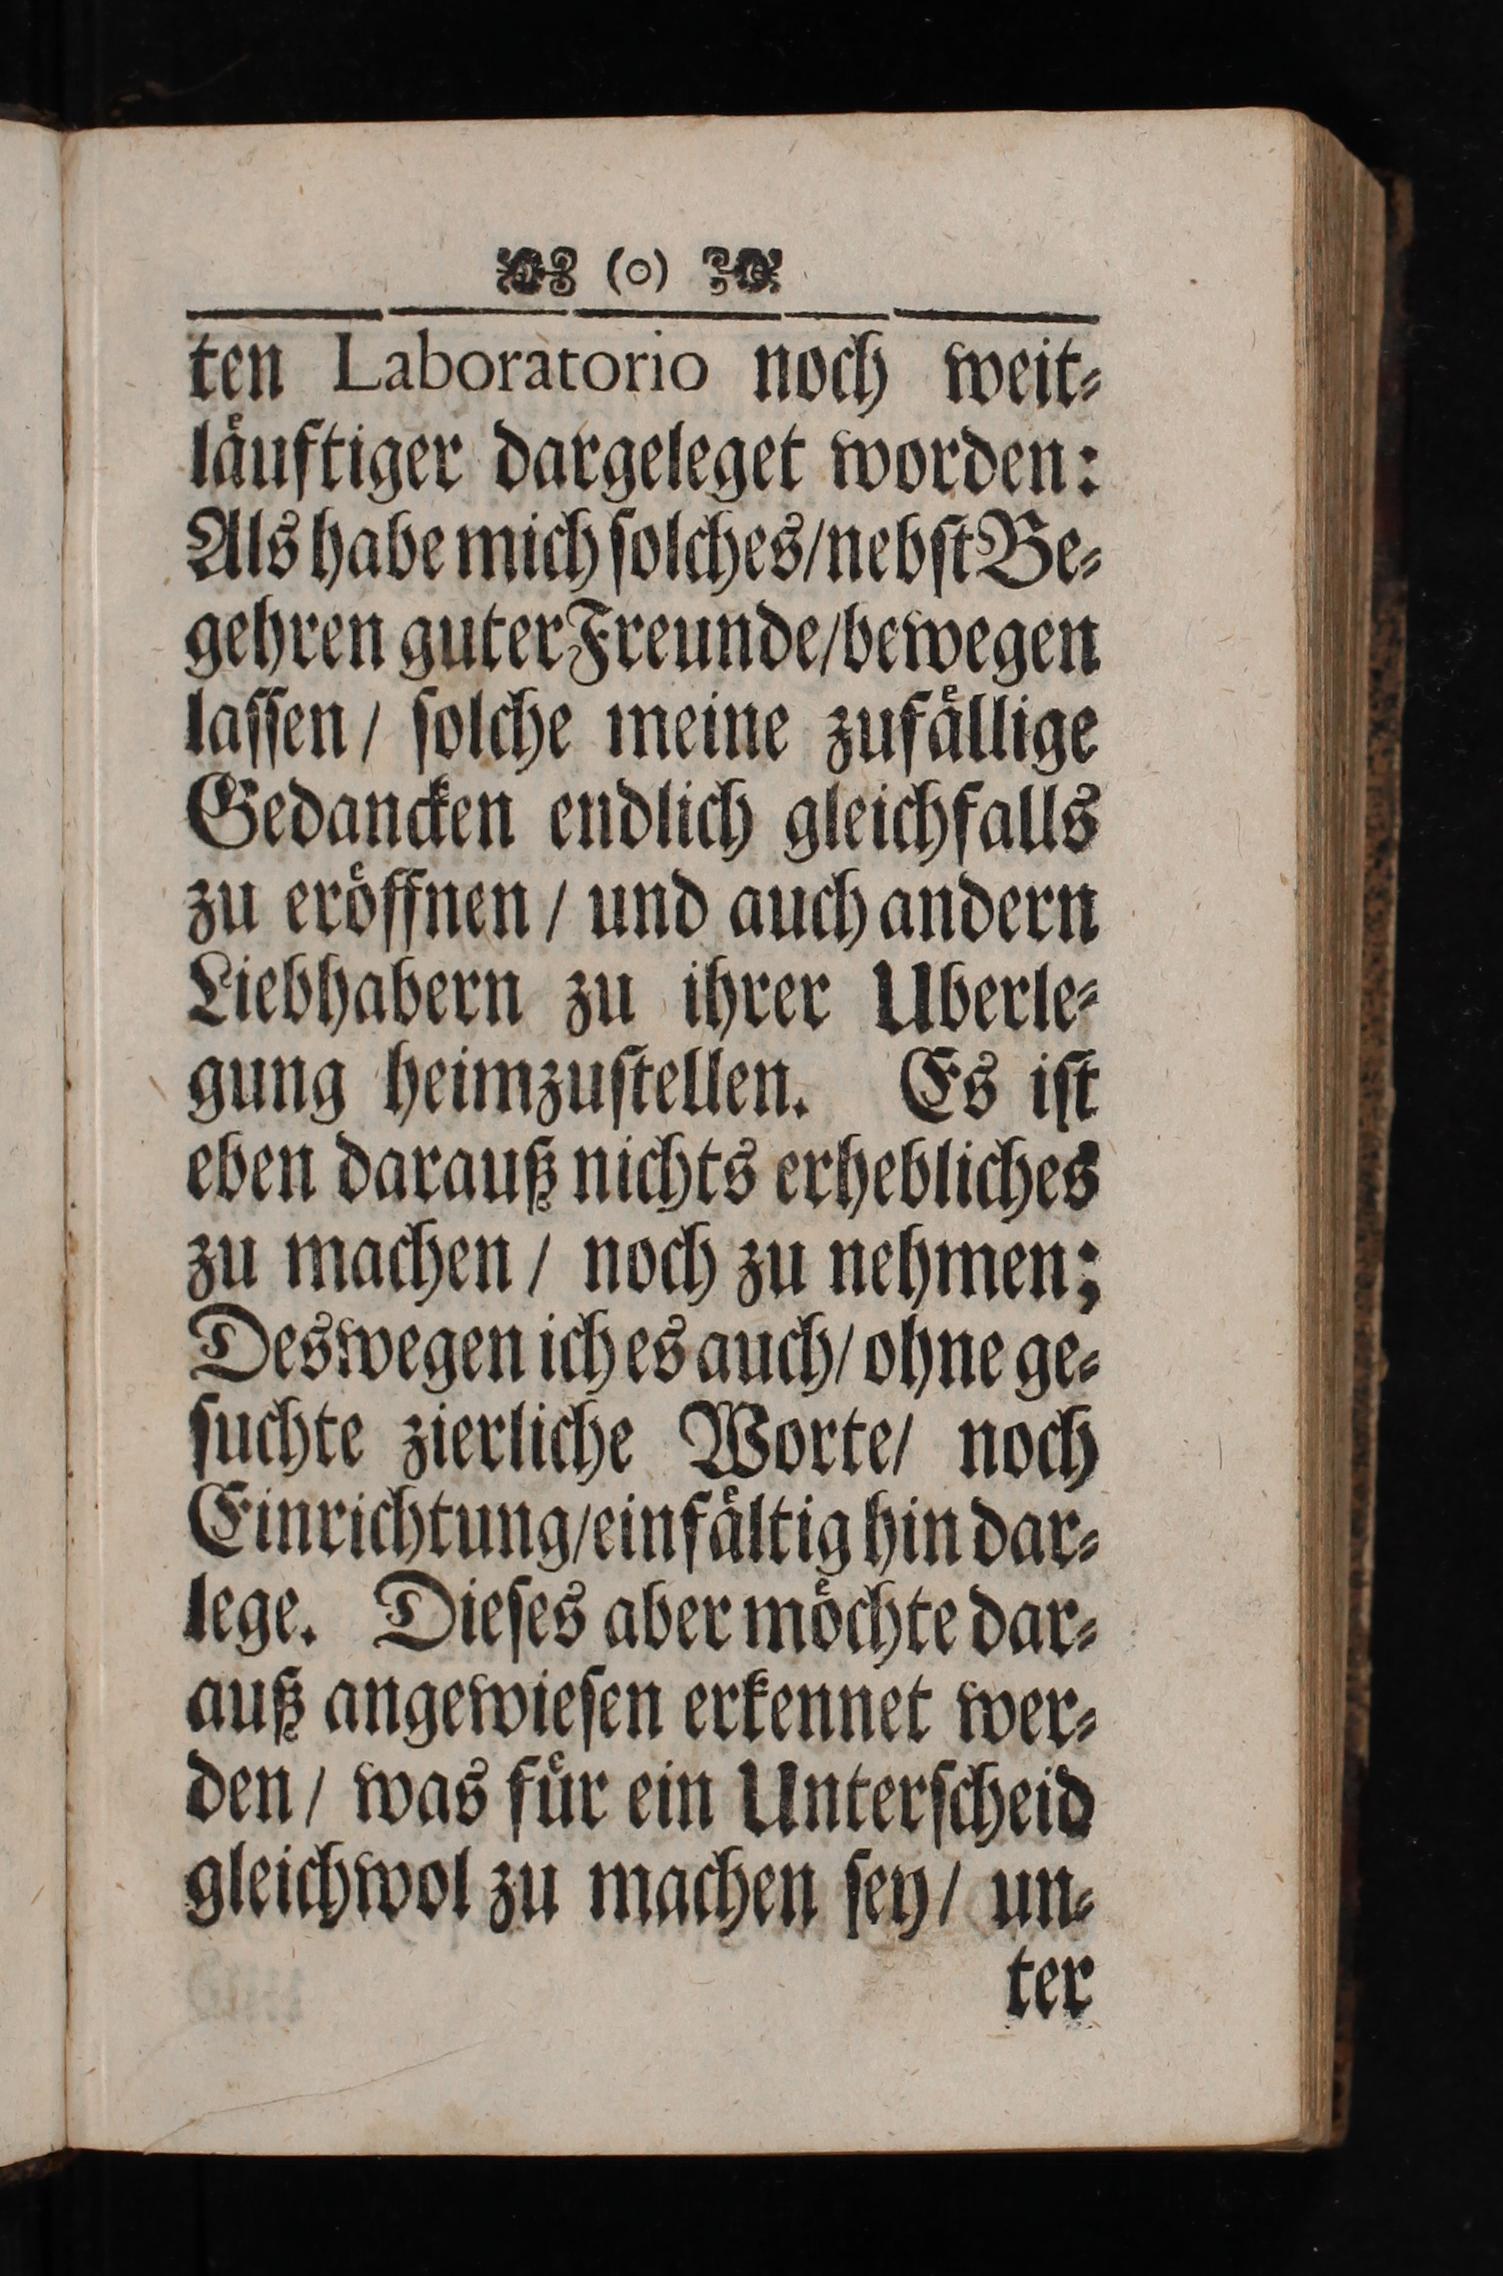 (o)
ten Laboratorio noch weit⸗
laͤuftiger dargeleget worden:
Als habe mich ſolches/nebſt Be⸗
gehren guter Freunde/bewegen
laſſen/ ſolche meine zufaͤllige
Gedancken endlich gleichfalls
zu eroͤffnen/ und auch andern
Liebhabern zu ihrer Uberle⸗
gung heimzuſtellen. Es iſt
eben darauß nichts erhebliches
zu machen/ noch zu nehmen;
Deswegen ich es auch/ ohne ge⸗
ſuchte zierliche Worte/ noch
Einrichtung/einfaͤltig hin dar⸗
lege. Dieſes aber moͤchte dar⸗
auß angewieſen erkennet wer⸗
den/ was fuͤr ein Unterſcheid
gleichwol zu machen ſey/ un⸗
ter